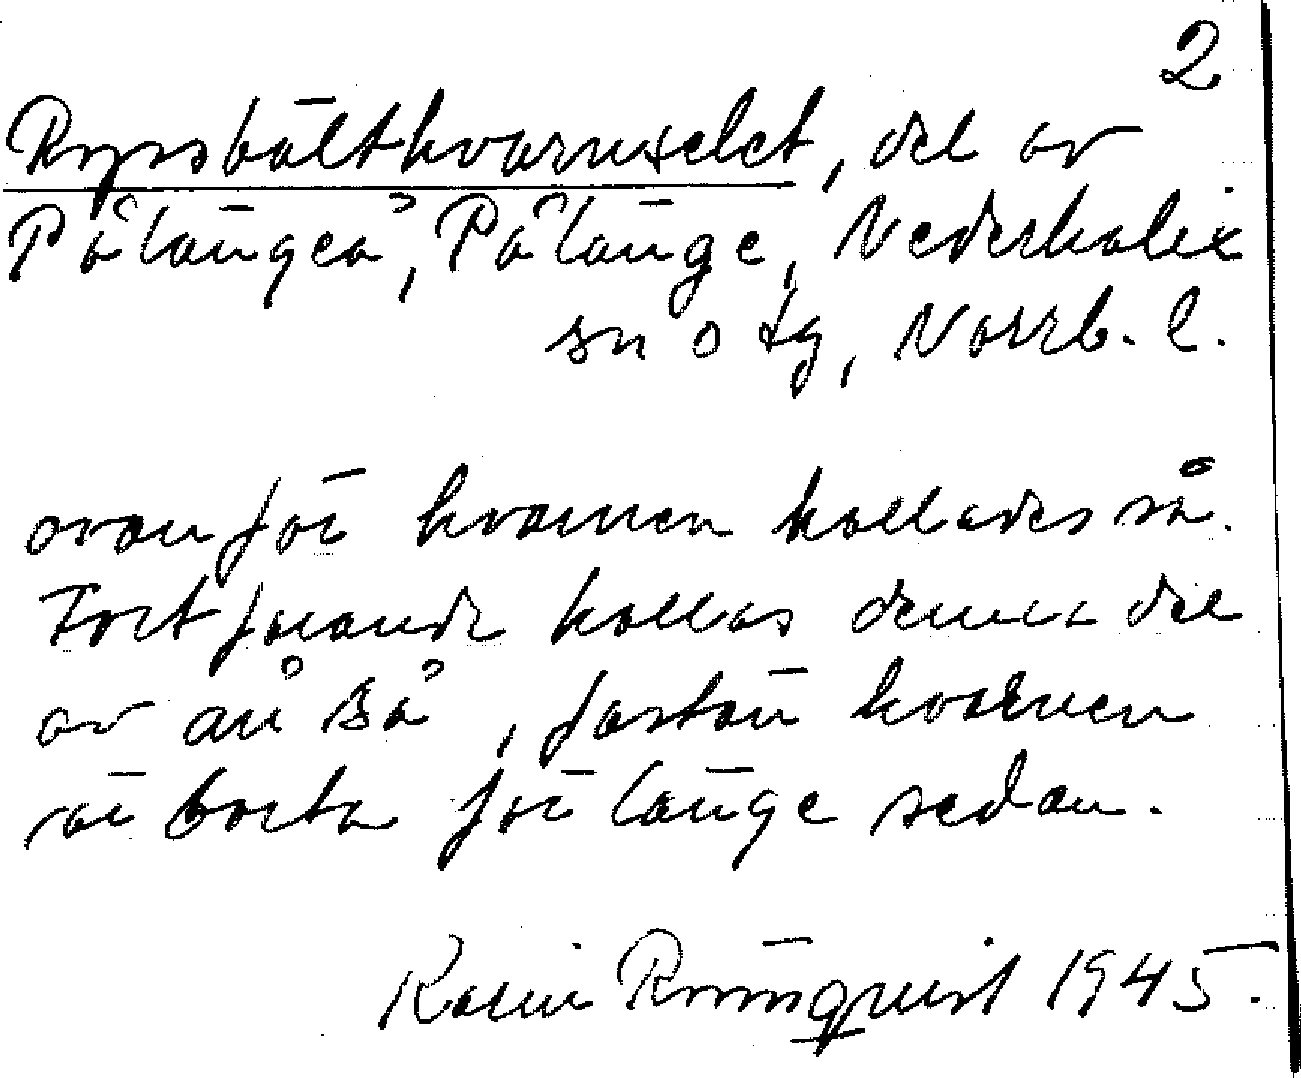 2
Ryssbältkvarnselet, del av
Pålängeå, Pålänge, Nederkalix
sn o tg, Norrb. l.
ovanför kvarnen kallades så.
Fortfarande kallas denna del
av ån så, fastän kvarnen
är borta för länge sedan.
Karin Rönnqvist 1945.